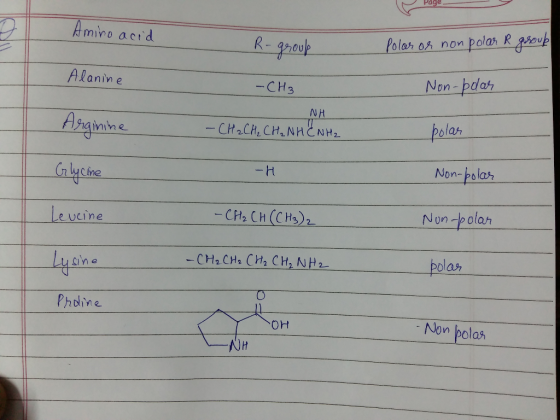 Page
Amino acid R-group Polar or non polar R group
Alanine -CH3 Non-polar
NH
Arginine -CH2CH2CH2NHCNH2 polar
Glycine -H Non-polar
Leucine -CH2CH(CH3)2 Non-polar
Lysine -CH2CH2CH2CH2NH2 polar
Proline
O
OH
NH
Non polar